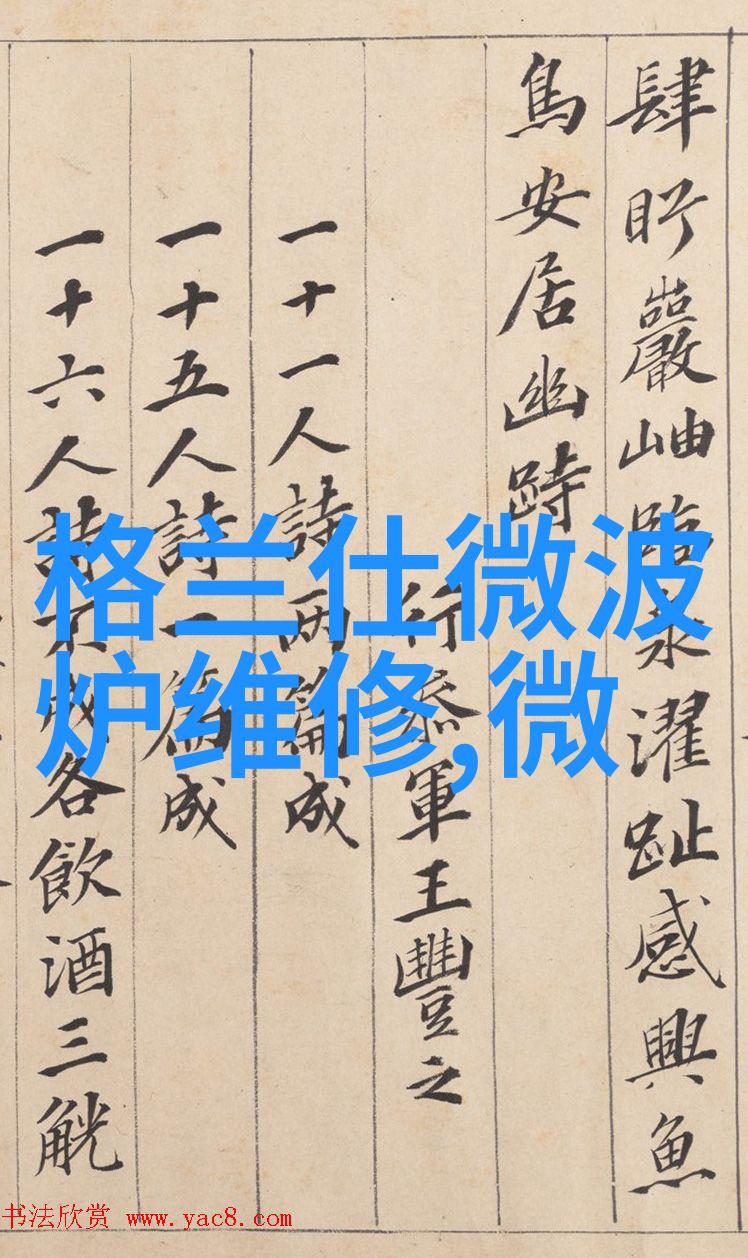 肆盻巖岫臨泉濯趾感興魚
鳥安居幽跱
行叅軍王豐之
一十一人詩兩篇成
一十五人詩一篇成
一十六人詩不成各飲酒三觥
格兰仕微波
炉维修,微
书法欣赏 www.yac8.com